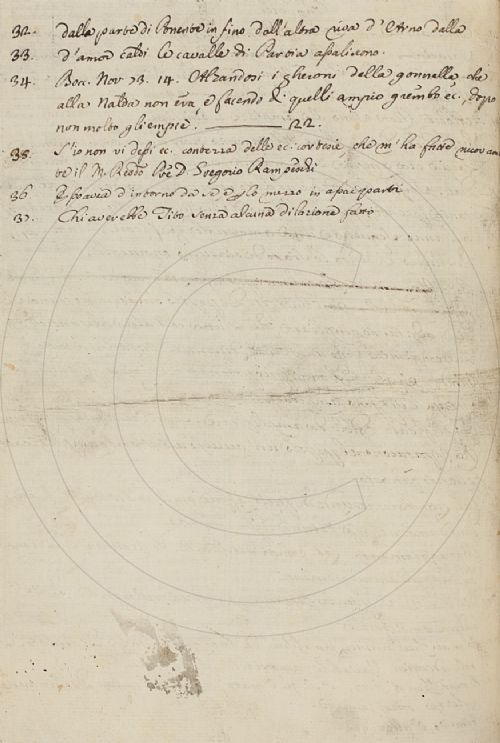 32. dalla parte di Ponente in fino dall'altra riva d' Etno dalla
33. d'amor caldi le cavalle di Partia assaliscono.
34. Bocc. Nov 73. 14. Alzandosi i gheroni della gonnella, che
alla Nalda non era, e facendo di quelli ampio grembo ec., dopo
non molto gli empiè. 22.
35. S'io non vi dessi ec. contezza delle ec. cortesie, che m' ha fatte nuovam
te il M. Rdo D. Gregorio
36 d'intorno da se e lo mezzo in assai parti
37. Chi averebbe Tito senza alcuna dilazione fatto